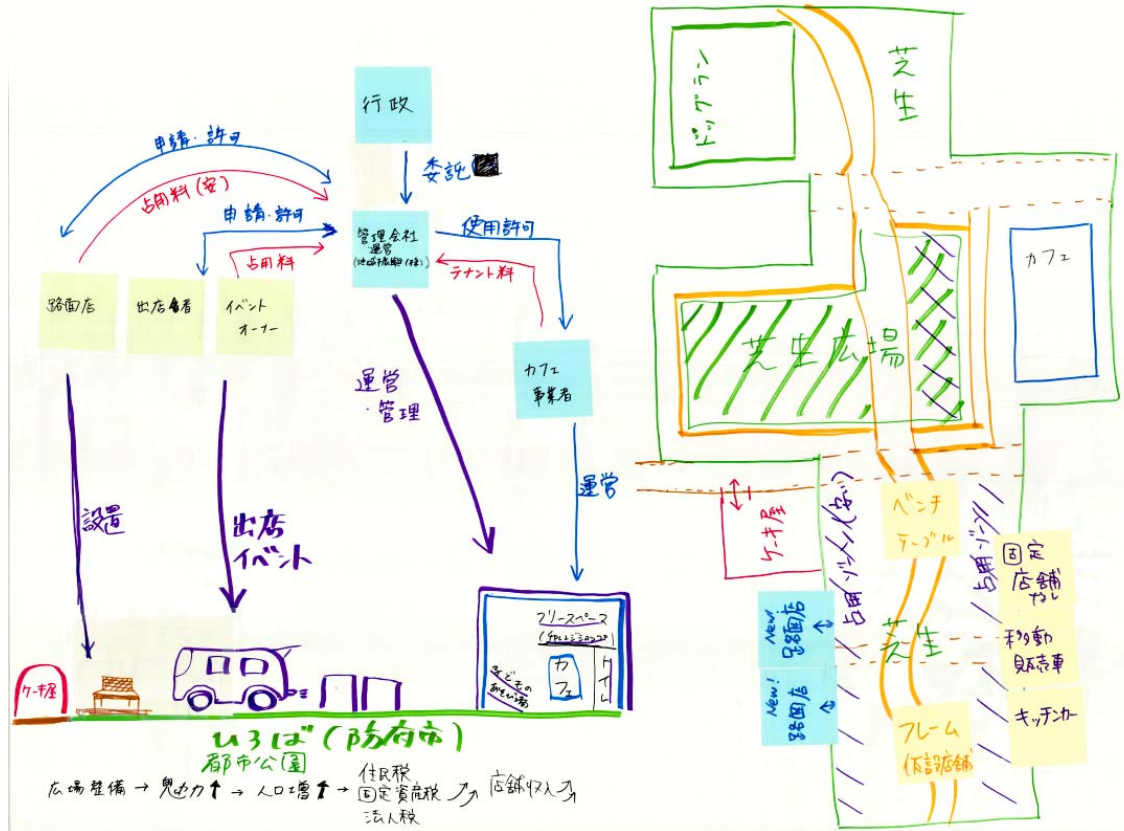 行政
委託
申請・許可
占用料(安)
申請・許可
占用料
管理会社
運営
使用許可
テナント料
路面店
出店者
イベント
オーナー
カフェ
事業者
運営
・管理
運営
設置
出店
イベント
ケーキ屋
フリースペース
カフェ
トイレ
ひろば(防府市)
都市公園
広場整備→魅力↑→人口増↑→
住民税
固定資産税
法人税
店舗収入
ドッグラン
芝生
カフェ
芝生広場
ケーキ屋
占用ゾーン(安い)
ベンチ
テーブル
占用ゾーン
固定
店舗
なし
移動
販売車
キッチンカー
New!
路面店
New!
路面店
芝生
フレーム
仮設店舗